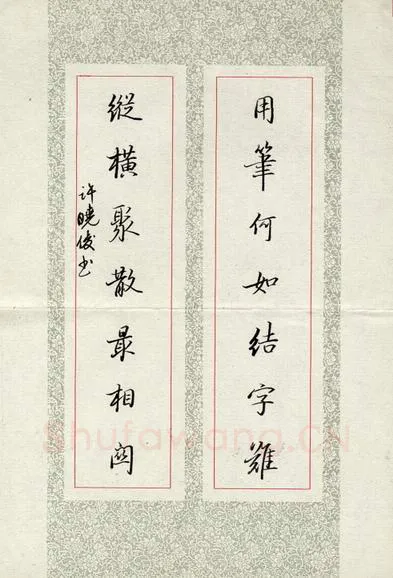 用筆何如結字難
縱橫聚散最相關
許曉俊书
Shufawang.CN